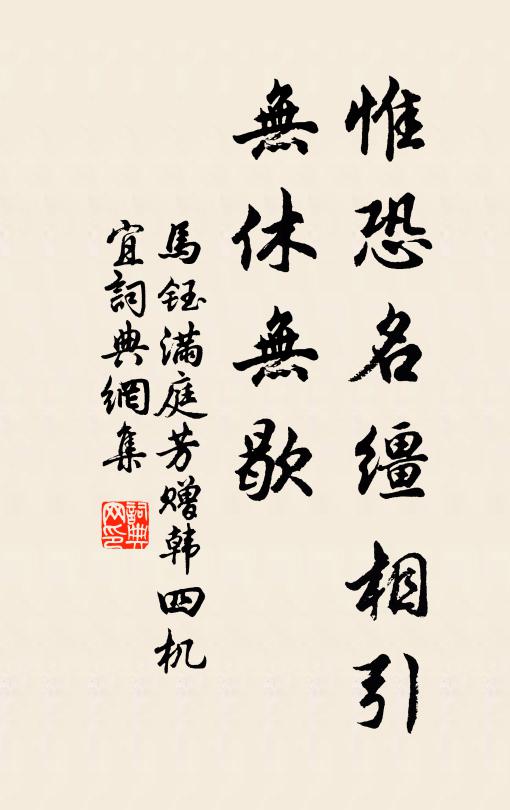 惟恐名缰相引
無休無歇
馬鈺满庭芳赠韩四机
宜詞典網集
詞典
网印